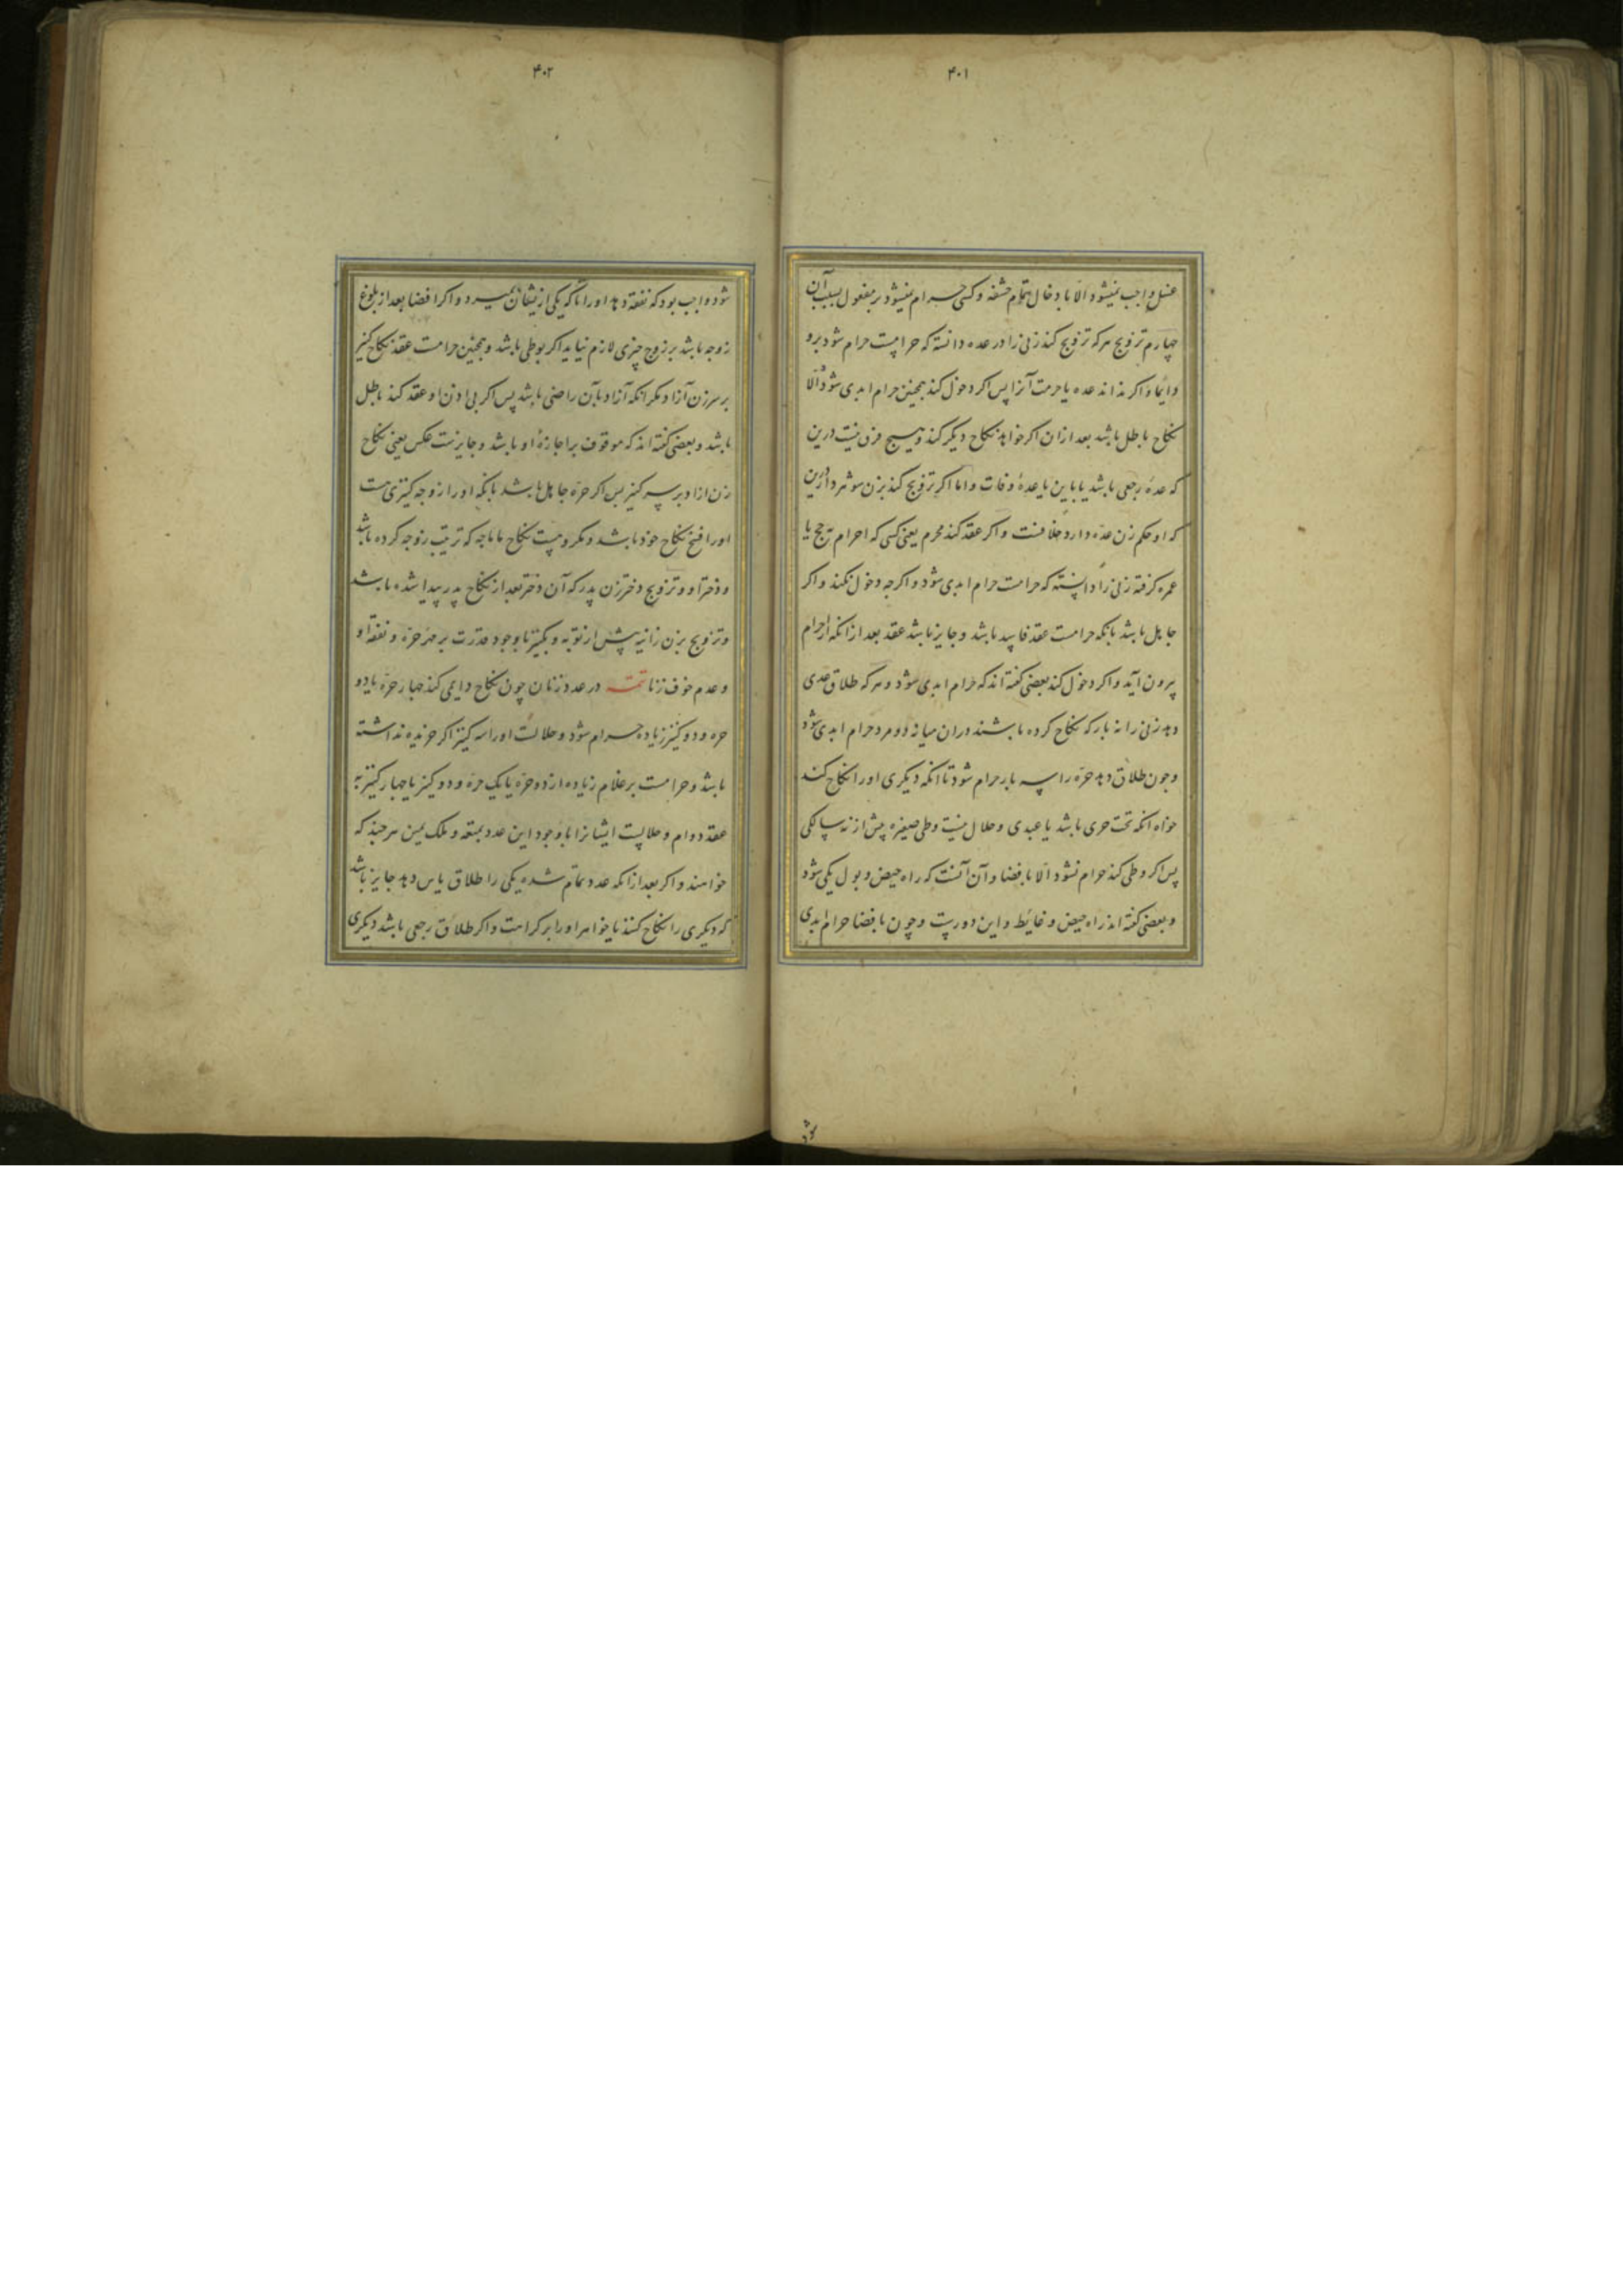 ۴۰۱
غسل واجب نمیشود الا بادخال تمام حشفه و کسی حرام نمیشود بر مفعول بسبب آن
چهارم تزویج هرکه تزویج کند زنی را در عده دانسته که حرامست حرام شود برو
دایما و اکر نداند عده یا حرمت آنرا پس اکر دخول کند همچنین حرام ابدی شود و الا
نکاح باطل باشد بعد از ان اکر خواهد نکاح دیکر کند و هیچ فرق نیست درین
که عدهٔ رجعی باشد یا باین یا عدهٔ وفات و اما اکر تزویج کند بزن شوهردار درین
که او حکم زن عده دارد خلافست و اکر عقد کند محرم یعنی کسی که احرام حج یا
عمره کرفته زنی را دانسته که حرامست حرام ابدی شود و اکرچه دخول نکند و اکر
جاهل باشد بانکه حرامست عقد فاسد باشد و جایز باشد عقد بعد از انکه از احرام
بیرون آید و اکر دخول کند بعضی کفته اند که حرام ابدی شود و هرکه طلاق عدی
دهد زنی را نه بار که نکاح کرده باشند دران میانه دو مرد حرام ابدی شود
و چون طلاق دهد حره را سه بار حرام شود تا انکه دیکری او را نکاح کند
خواه انکه تحت حری باشد یا عبدی و حلال نیست وطی صغیره پیش از نه سالکی
پس اکر وطی کند حرام نشود الا بافضا و آن آنست که راه حیض و بول یکی شود
و بعضی کفته اند راه حیض و غایط و این دورست و چون بافضا حرام ابدی
شود
۴۰۲
شود واجب بود که نفقه دهد او را تا که یکی ازیشان بمیرد و اکر افضا بعد از بلوغ
زوجه باشد بر زوج چیزی لازم نیاید اکر بوطی باشد و همچنین حرامست عقد نکاح کنیز
بر سر زن آزاد مکر انکه آزاد بآن راضی باشد پس اکر بی اذن او عقد کند باطل
باشد و بعضی کفته اند که موقوف بر اجازهٔ او باشد و جایزست عکس یعنی نکاح
زن ازاد بر سر کنیز پس اکر حره جاهل باشد بانکه او را زوجه کنیزی هست
او را فسخ نکاح خود باشد و مکروهست نکاح ماماچه که تربیت زوجه کرده باشد
و دختر او و تزویج دختر زن پدر که آن دختر بعد از نکاح پدر پیدا شده باشد
و تزویج بزن زانیه پیش از توبه و بکنیز با وجود قدرت بر مهر حره و نفقه او
و عدم خوف زنا تتمه در عدد زنان چون نکاح دایمی کند چهار حره یا دو
حره و دو کنیز زیاده حرام شود و حلالست او را سه کنیز اکر حره نداشته
باشد و حرامست بر غلام زیاده از دو حره یا یک حره و دو کنیز یا چهار کنیز به
عقد دوام و حلالست ایشانرا با وجود این عدد بمتعه و ملک یمین هرچند که
خواهند و اکر بعد از انکه عدد تمام شده یکی را طلاق باین دهد جایز باشد
که دیکری را نکاح کند یا خواهر او را بر کراهت و اکر طلاق رجعی باشد دیکری